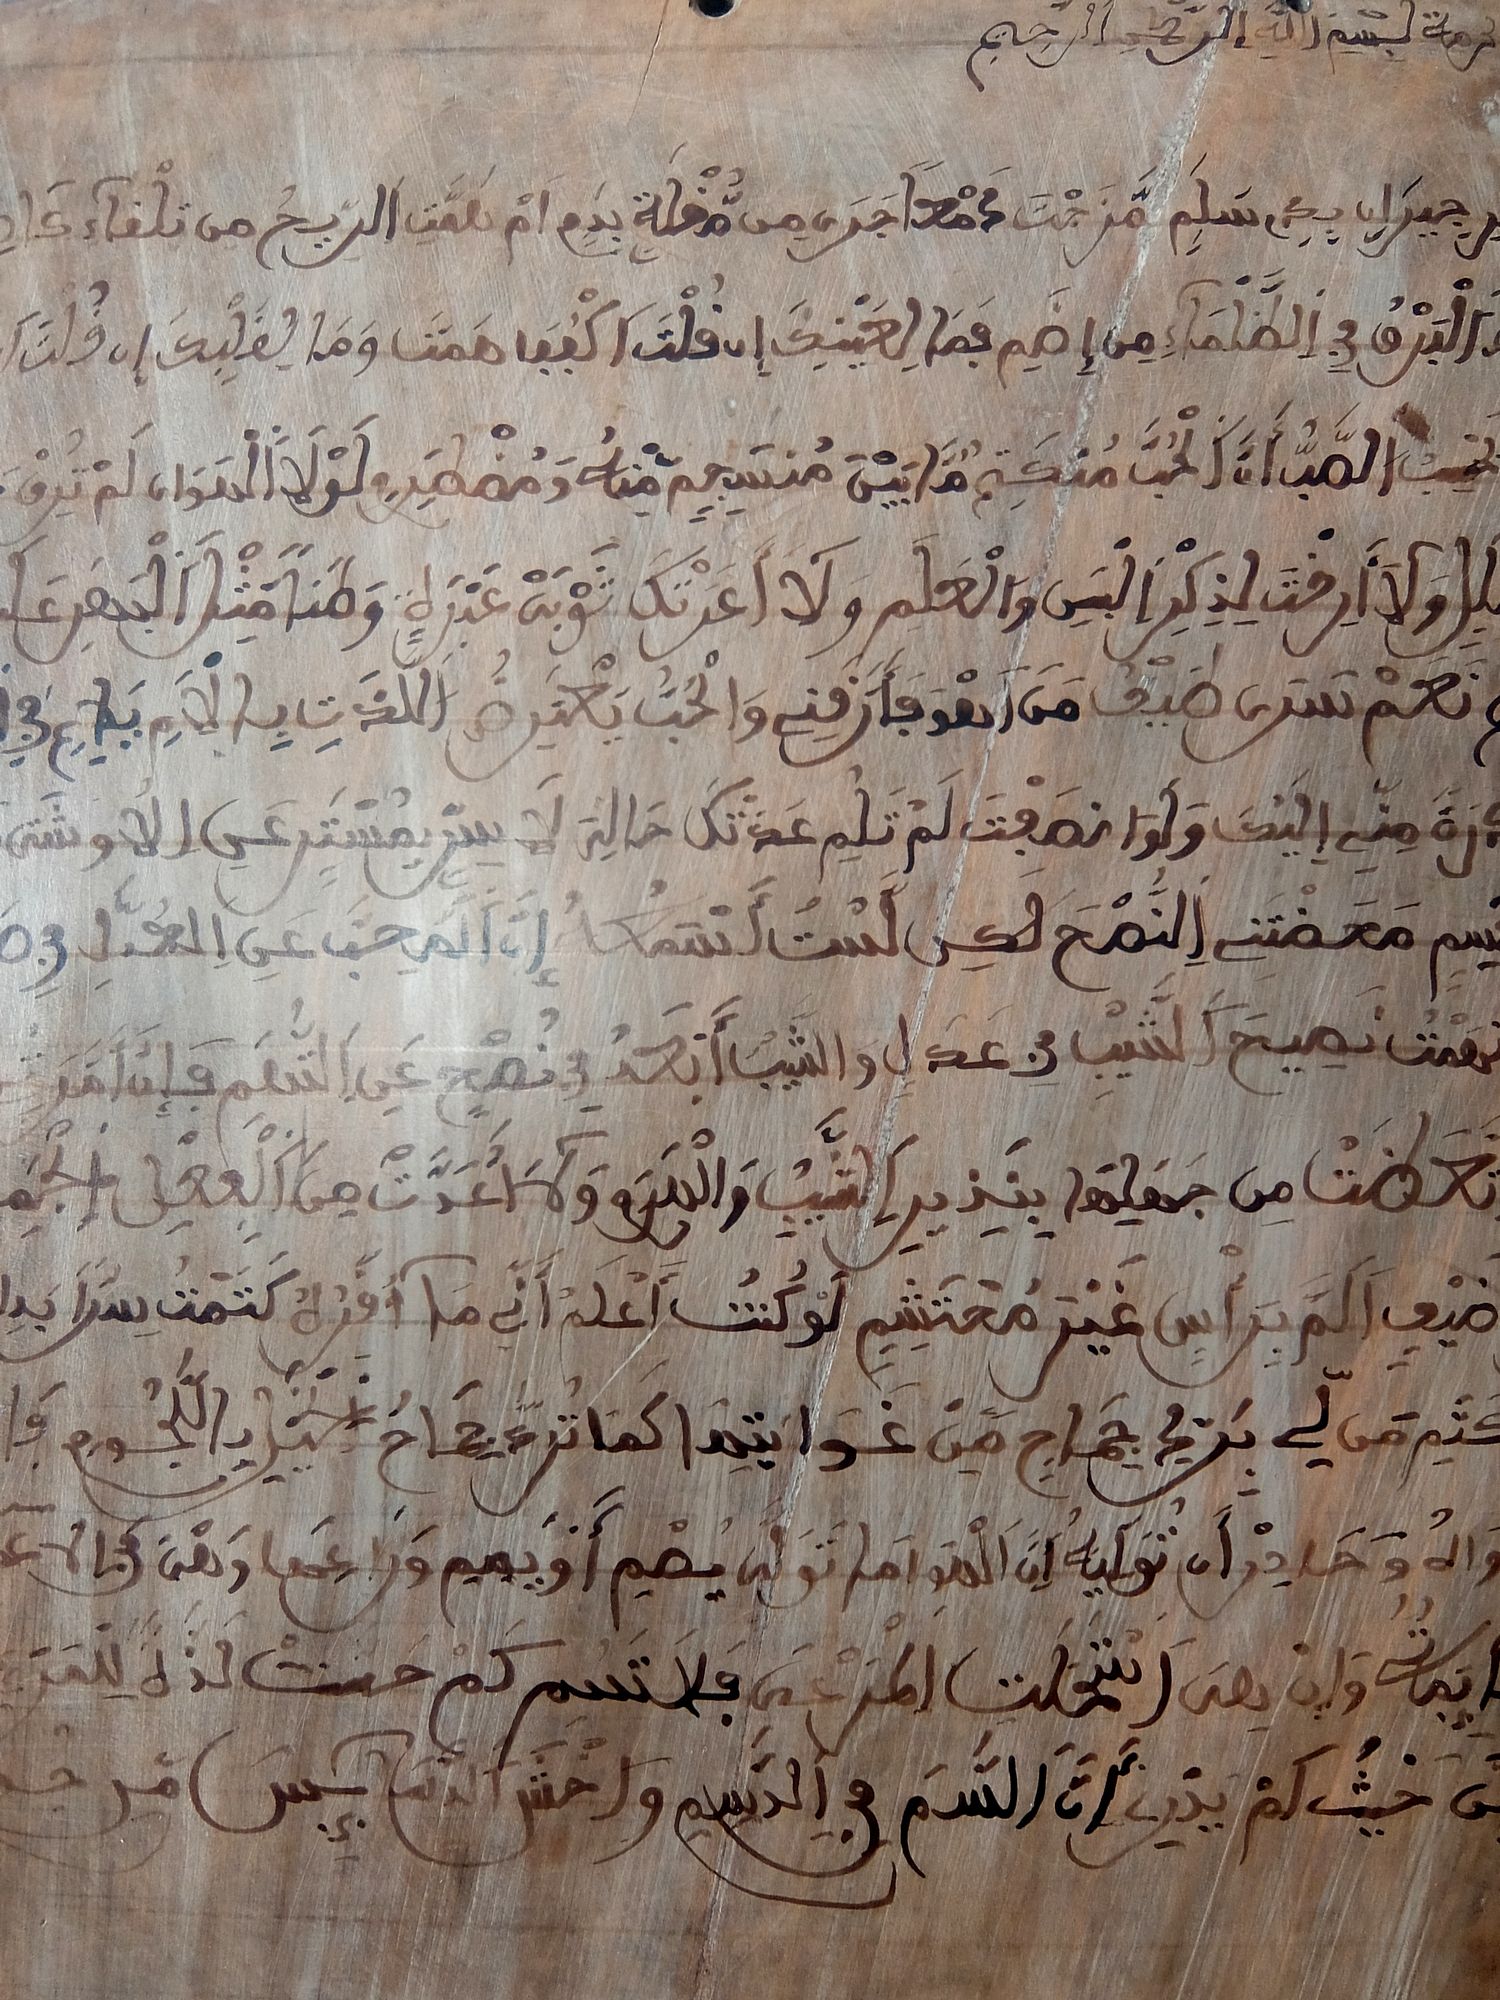 بسم الله الرحمن الرحيم
جيران بذي سلم مزجت دمعا جرى من مقلة بدم ام هبت الريح من تلقاء
البرق في الظلماء من إضم فما لعينيك إن قلت اكففا همتا وما لقلبك إن قلت
الصب أن الحب منكتم ما بين منسجم منه ومضطرم لولا الهوى لم ترق
ولا أرقت لذكر البان والعلم ولا أعرتك ثوبي عبرة وضنا مثل البهار على
نعم سرى طيف من اهوى فأرقني والحب يعترض اللذات بالالم يا لائمي في
مني إليك ولو انصفت لم تلم عدتك حالي لا سري بمستتر عن الوشاة
محضتني النصح لكن لست أسمعه إن المحب عن العذال في
اتهمت نصيح الشيب في عذل والشيب أبعد في نصح عن التهم فإن أمارتي
اتعظت من جهلها بنذير الشيب والهرم ولا أعدت من الفعل الجميل
ضيف ألم برأس غير محتشم لو كنت أعلم أني ما أوقره كتمت سرا بدا
من لي برد جماح من غوايتها كما ترد جماح الخيل باللجم فلا
وحاذر أن توليه إن الهوى ما تولى يصم أو يصم وراعها وهي في الاعمال
وإن هي استحلت المرعى فلا تسم كم حسنت لذة للمرء
من حيث لم يدر أن السم في الدسم واخش الدسائس من